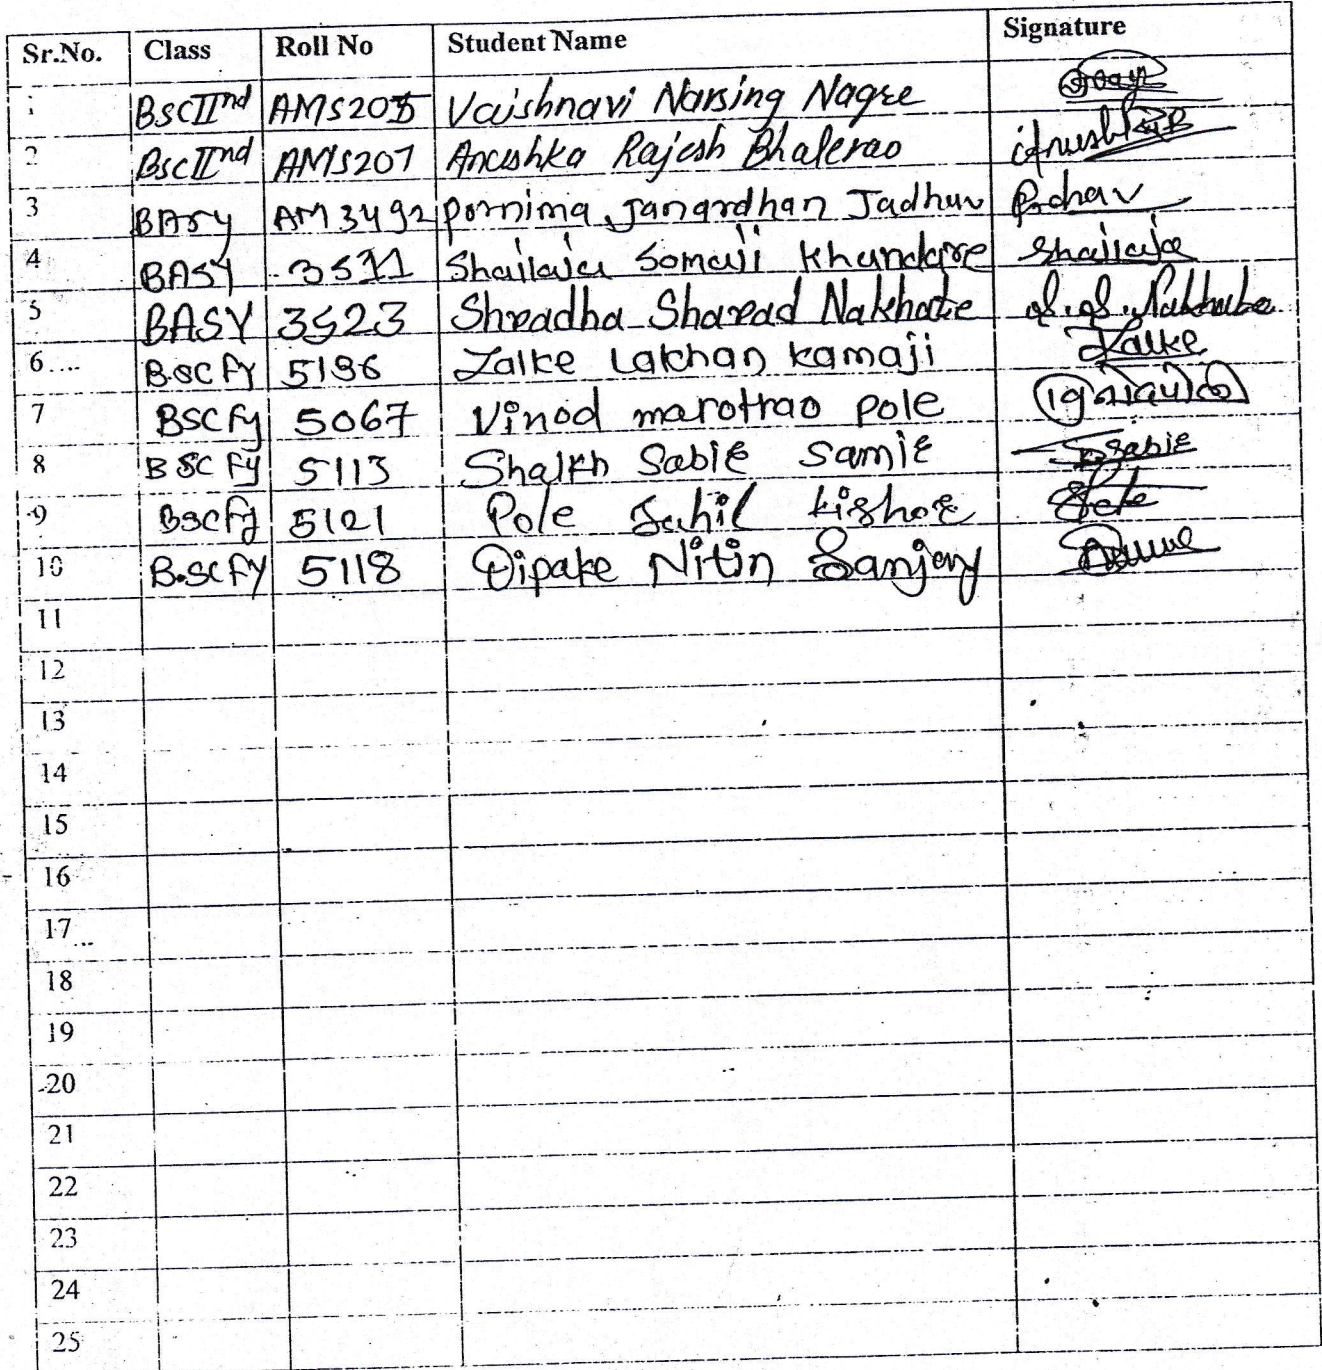 Sr.No. Class Roll No Student Name Signature
1 BSCIInd AMS205 Vaishnavi Narsing Nagre
2 BscIInd AMS207 Anushka Rajesh Bhalerao
3 BASY AM3492 Pornima Janardhan Jadhav
4 BASY 3511 Shailaja Somaji Khandare Shailaja
5 BASY 3523 Shradha Sharad Nakhate S.S. Nakhate
6 BSCFY 5196 Zalke Lakhan kamaji Zalke
7 BSCFY 5067 Vinod marotrao pole
8 BSCFY 5113 Shaikh Sabir Samir
9 BSCFY 5121 Pole Sahil kishor
10 B.SCFY 5118 Dipake Nitin Sanjay
11
12
13
14
15
16
17
18
19
20
21
22
23
24
25